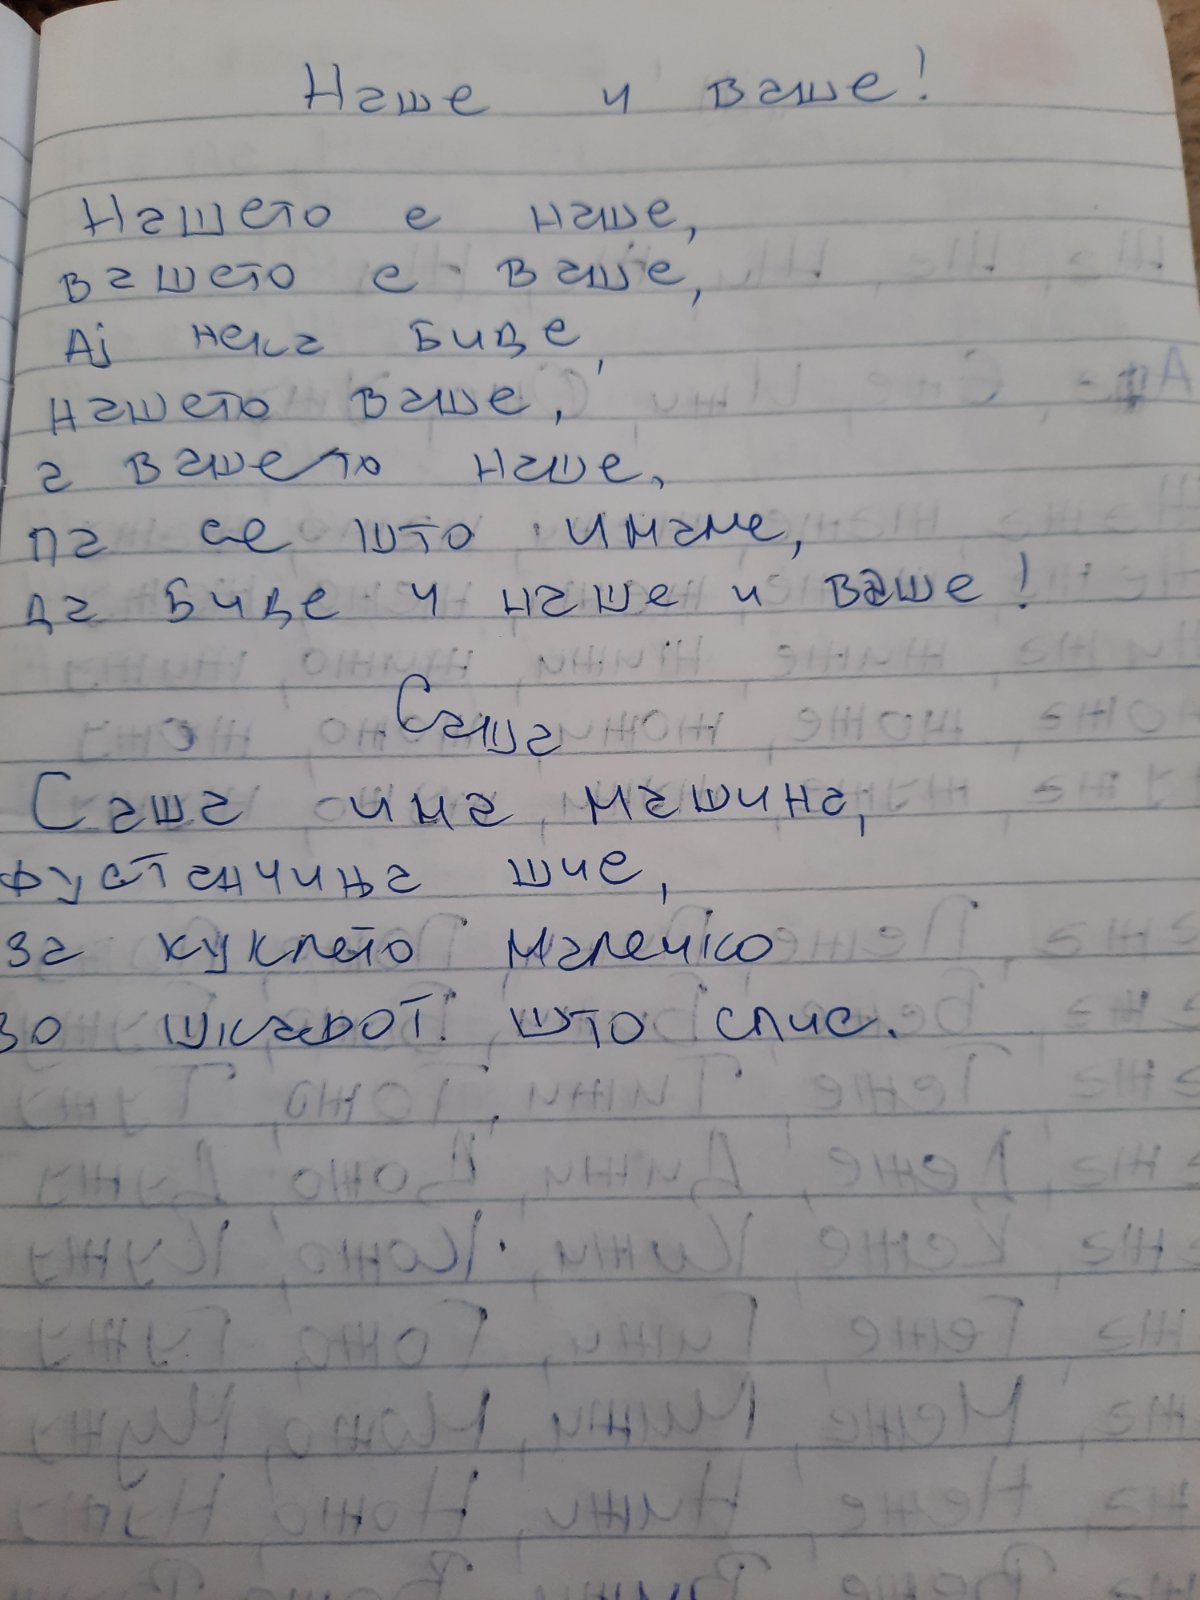 Наше и ваше!
Нашето е наше,
вашето е ваше,
Ај нека биде,
нашето ваше,
а вашето наше,
па се што имаме,
да биде и наше и ваше!
Саша
Саша има машина,
фустанчиња шие,
за куклето малечко
во шкафот што спие.